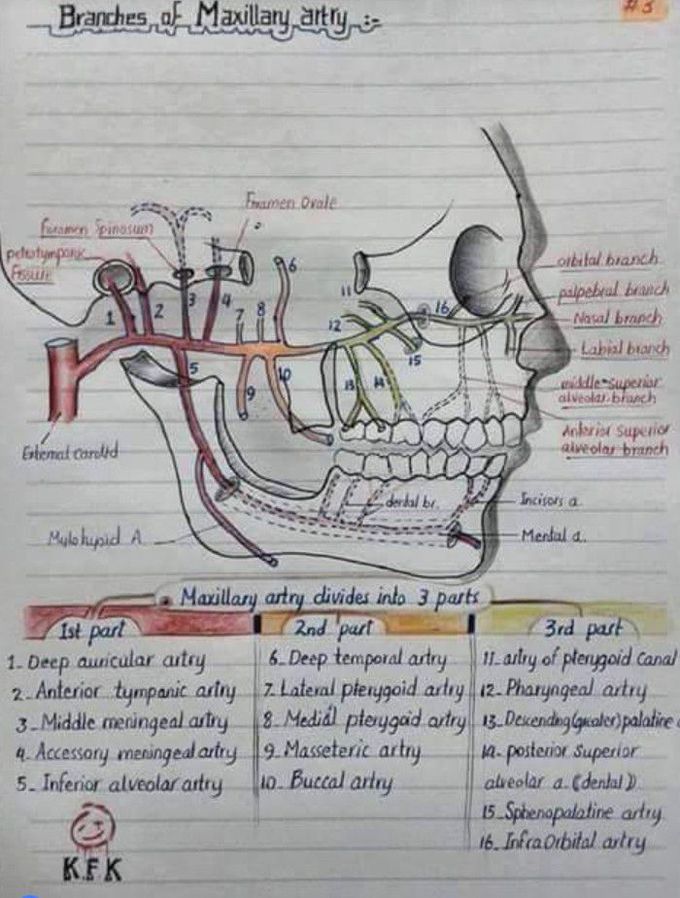 # 3
Branches of Maxillary artry :-
Foramen Ovale
Foramen Spinosum
petrotympanic
Fissure
orbital branch
palpebral branch
Nasal branch
Labial branch
middle-superior
alveolar branch
Anterior superior
alveolar branch
1
2
3
4
5
6
7
8
9
10
11
12
13
14
15
16
External carotid
Mylohyoid A
dental br.
Incisors a
Mental a.
Maxillary artry divides into 3 parts
1st part
1- Deep auricular artry
2- Anterior tympanic artry
3- Middle meningeal artry
4- Accessory meningeal artry
5- Inferior alveolar artry
2nd part
6- Deep temporal artry
7- Lateral pterygoid artry
8- Medial pterygoid artry
9- Masseteric artry
10- Buccal artry
3rd part
11- artry of pterygoid Canal
12- Pharyngeal artry
13- Descending(greater)palatine a
14- posterior superior
alveolar a. (dental)
15- Sphenopalatine artry
16- InfraOrbital artry
K.F.K